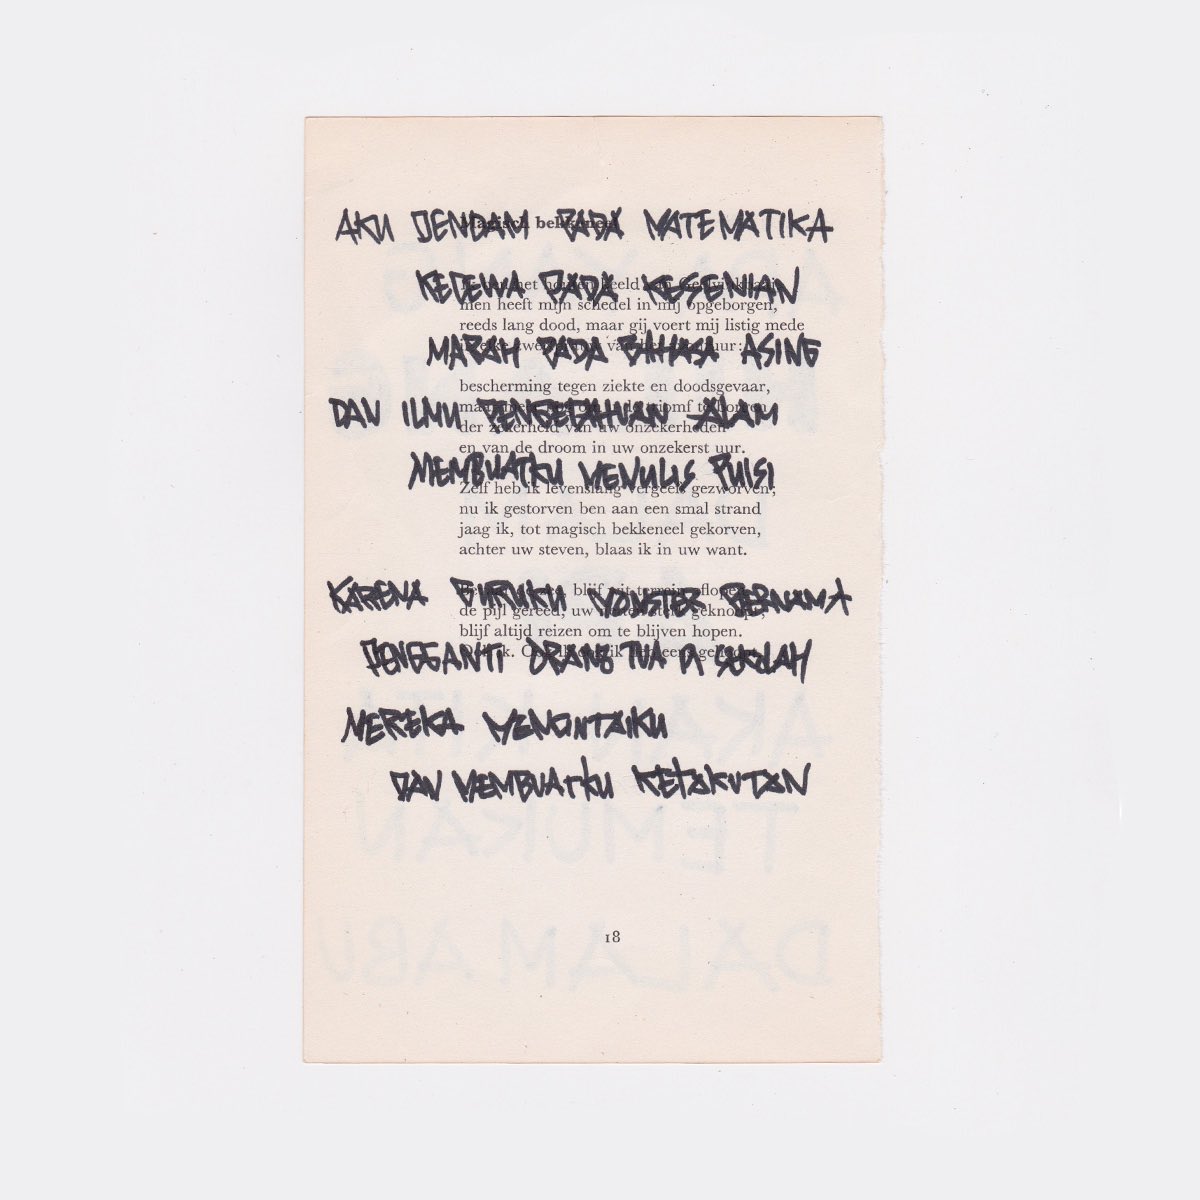 AKU DENDAM PADA MATEMATIKA
Magisch bekkeneel
KECEWA PADA KESENIAN
men heeft mijn schedel in mij opgeborgen,
reeds lang dood, maar gij voert mij listig mede
MARAH PADA BAHASA ASING
bescherming tegen ziekte en doodsgevaar,
DAN ILMU PENGETAHUAN ALAM
der zekerheid van uw onzekerheden
en van de droom in uw onzekerst uur.
MEMBUATKU MENULIS PUISI
Zelf heb ik levenslang vergeefs gezworven,
nu ik gestorven ben aan een smal strand
jaag ik, tot magisch bekkeneel gekorven,
achter uw steven, blaas ik in uw want.
KARENA BURUKU MONSTER BERNAMA
blijf
de pijl gereed, uw
blijf altijd reizen om te blijven hopen.
PENGGANTI ORANG TUA DI SEKOLAH
MEREKA MEMONTAIKU
DAN MEMBUATKU KETAKUTAN
18